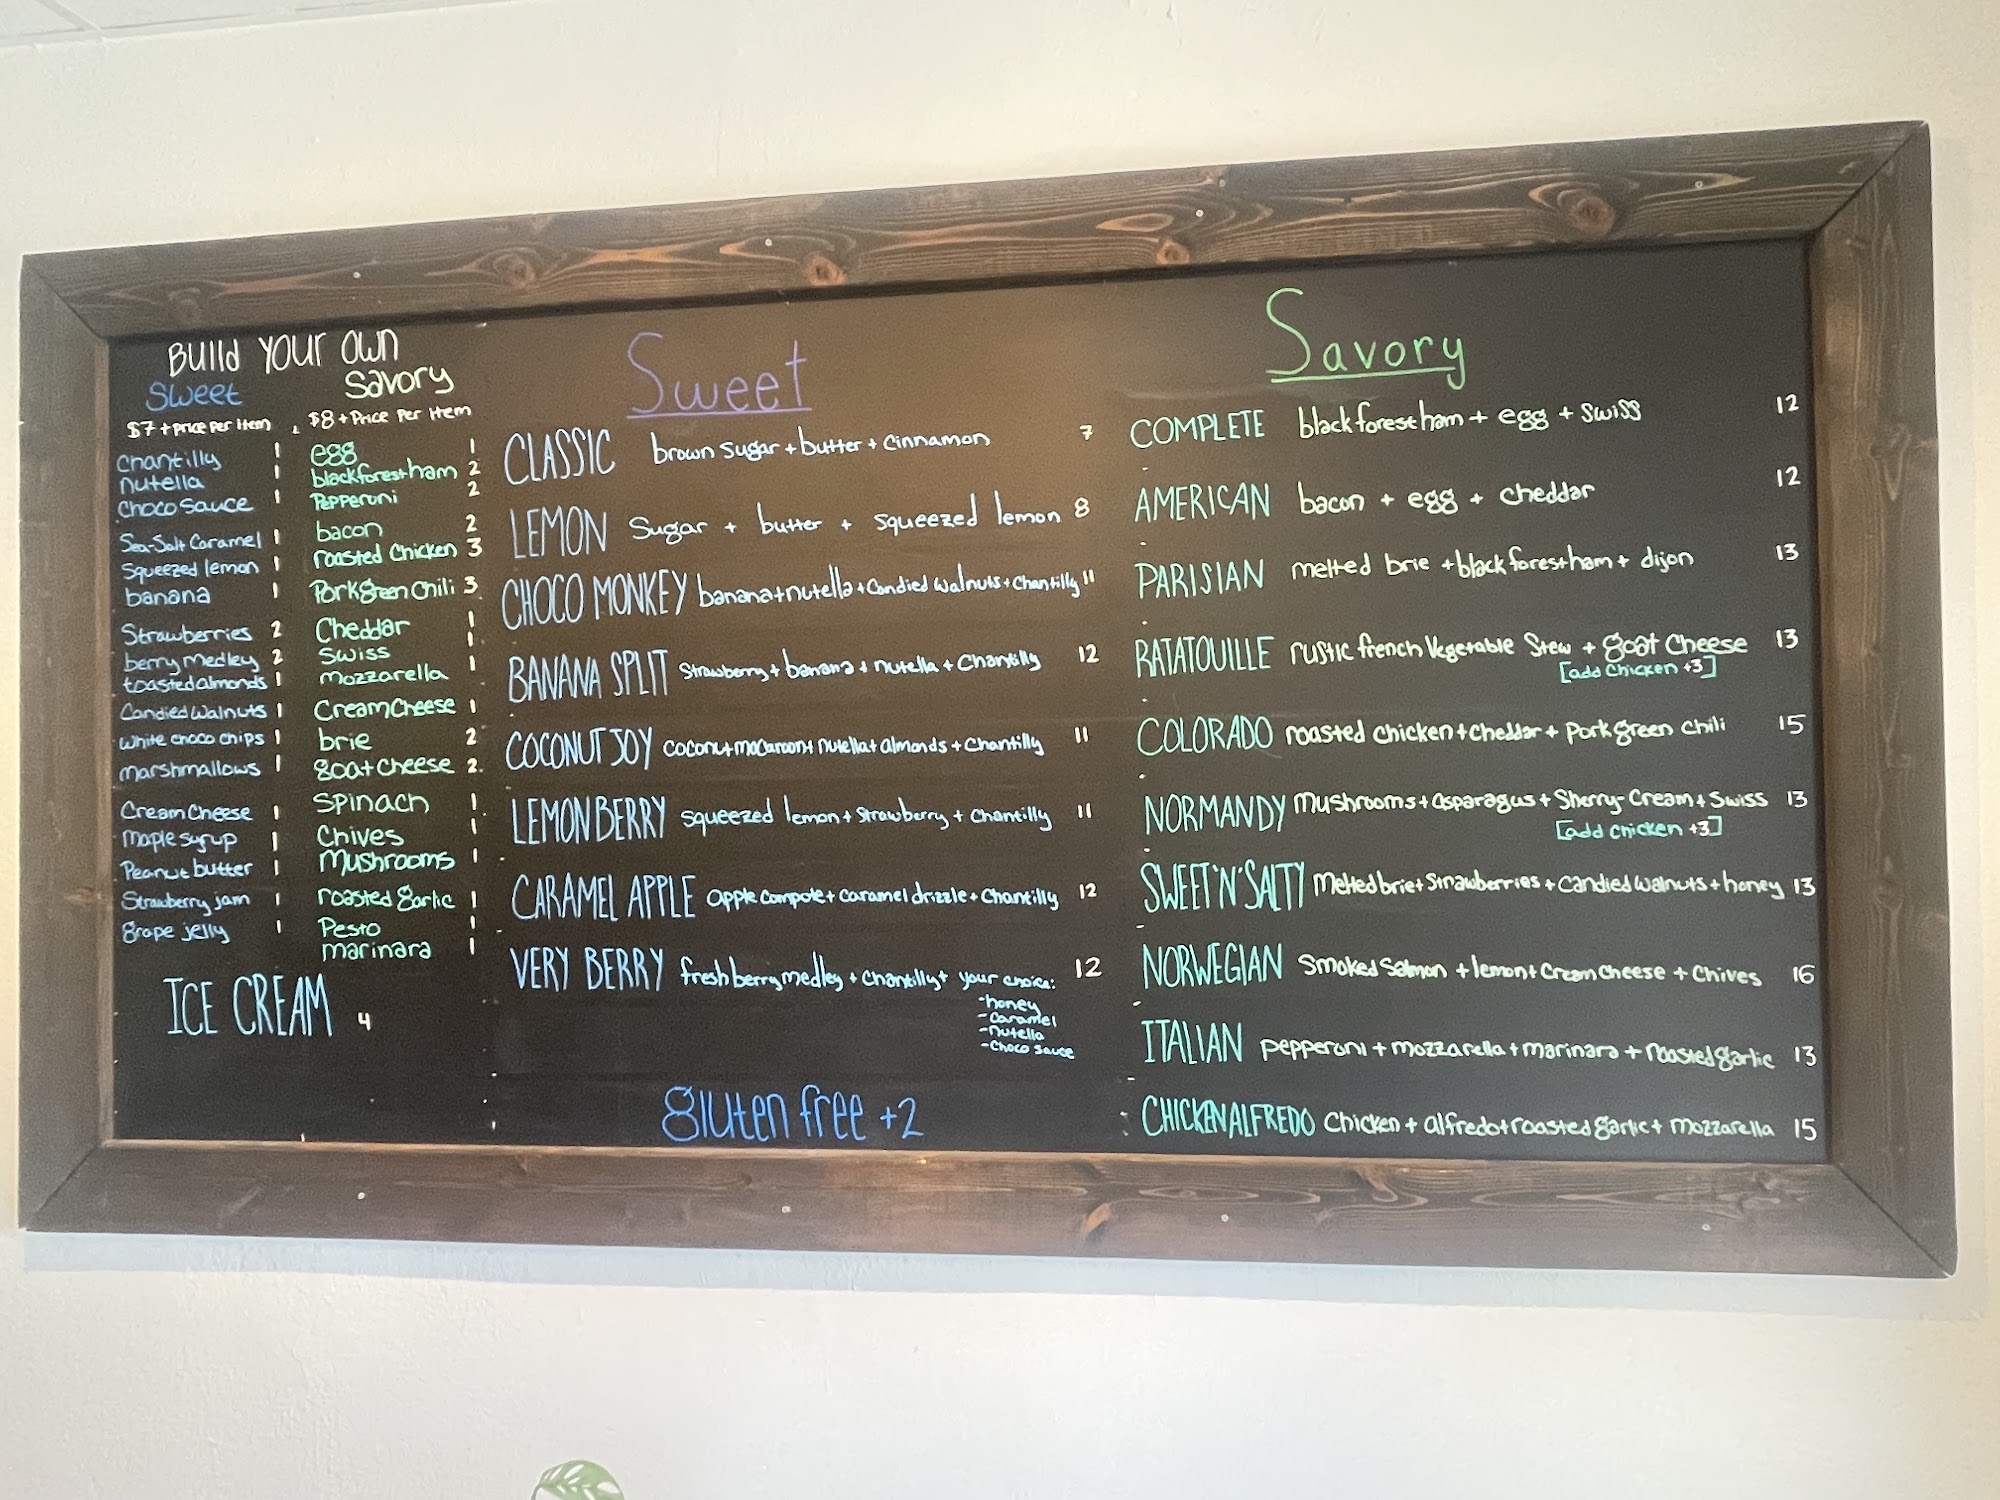 Build Your Own
Sweet
$7 + price per item
Chantilly 1
nutella 1
Choco sauce 1
Sea-Salt Caramel 1
Squeezed lemon 1
banana 1
Strawberries 2
berry medley 2
toasted almonds 1
Candied Walnuts 1
White choco chips 1
marshmallows 1
Cream Cheese 1
Maple syrup 1
Peanut butter 1
Strawberry jam 1
grape jelly 1
ICE CREAM 4
Savory
$8 + Price Per Item
egg 1
black forest ham 2
Pepperoni 2
bacon 2
roasted Chicken 3
Pork green Chili 3
Cheddar 1
Swiss 1
mozzarella 1
Cream Cheese 1
brie 2
goat cheese 2
Spinach 1
Chives 1
Mushrooms 1
roasted garlic 1
Pesto 1
marinara 1
Sweet
CLASSIC brown sugar + butter + cinnamon 7
LEMON Sugar + butter + squeezed lemon 8
CHOCO MONKEY banana + nutella + Candied Walnuts + Chantilly 11
BANANA SPLIT Strawberry + banana + nutella + Chantilly 12
COCONUT JOY Coconut macaroon + nutella + almonds + Chantilly 11
LEMON BERRY squeezed lemon + Strawberry + Chantilly 11
CARAMEL APPLE apple compote + caramel drizzle + Chantilly 12
VERY BERRY fresh berry medley + Chantilly + your choice: 12
-honey
-Caramel
-nutella
-Choco sauce
gluten free +2
Savory
COMPLETE black forest ham + egg + swiss 12
AMERICAN bacon + egg + cheddar 12
PARISIAN melted brie + black forest ham + dijon 13
RATATOUILLE rustic french Vegetable Stew + goat Cheese 13
[add Chicken +3]
COLORADO roasted chicken + cheddar + Pork green chili 15
NORMANDY Mushrooms + asparagus + Sherry-Cream + Swiss 13
[add chicken +3]
SWEET 'N' SALTY Melted brie + Strawberries + Candied Walnuts + honey 13
NORWEGIAN Smoked Salmon + lemon + Cream Cheese + Chives 16
ITALIAN pepperoni + mozzarella + marinara + roasted garlic 13
CHICKEN ALFREDO Chicken + alfredo + roasted garlic + mozzarella 15